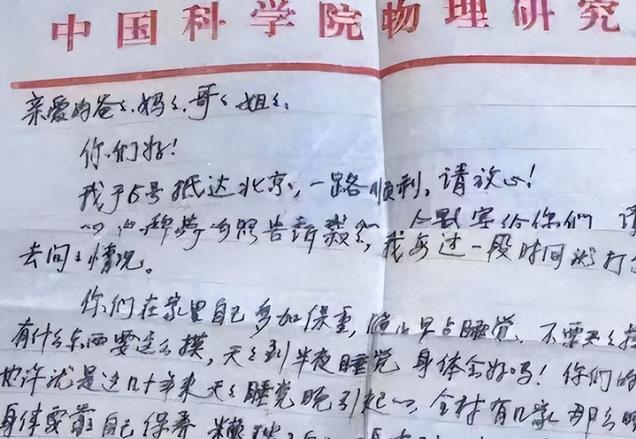 中国科学院物理研究
亲爱的爸爸、妈妈、哥哥、姐姐、
你们好!
我于5号抵达北京,一路顺利,请放心!
告诉 给你们 我每过一段时间就打
去问问情况。
你们在家里自己多加保重,晚上早点睡觉,不要天天
有什么东西要这么摸,天天到半夜睡觉 身体会好吗!你们的
也许就是这几十年来天天睡觉晚引起的,全村有几家那么晚
身体要靠自己保养